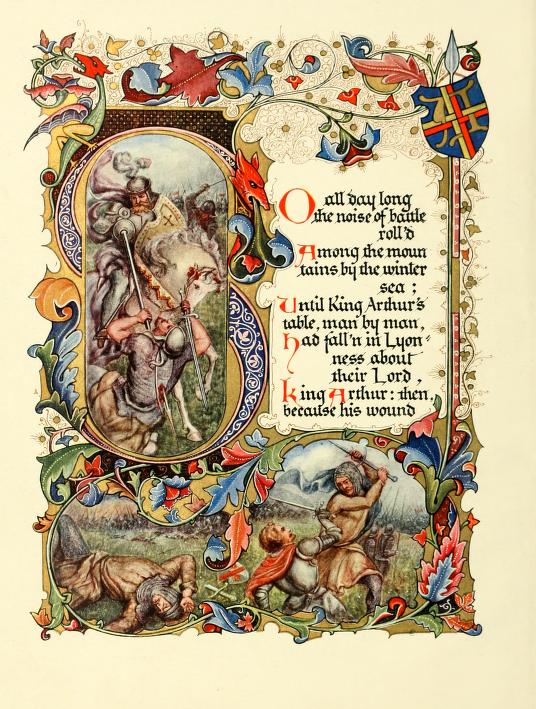 O all day long
the noise of battle
roll'd
Among the moun
tains by the winter
sea ;
Until King Arthur's
table, man by man,
had fall'n in Lyon=
ness about
their Lord,
King Arthur : then,
because his wound